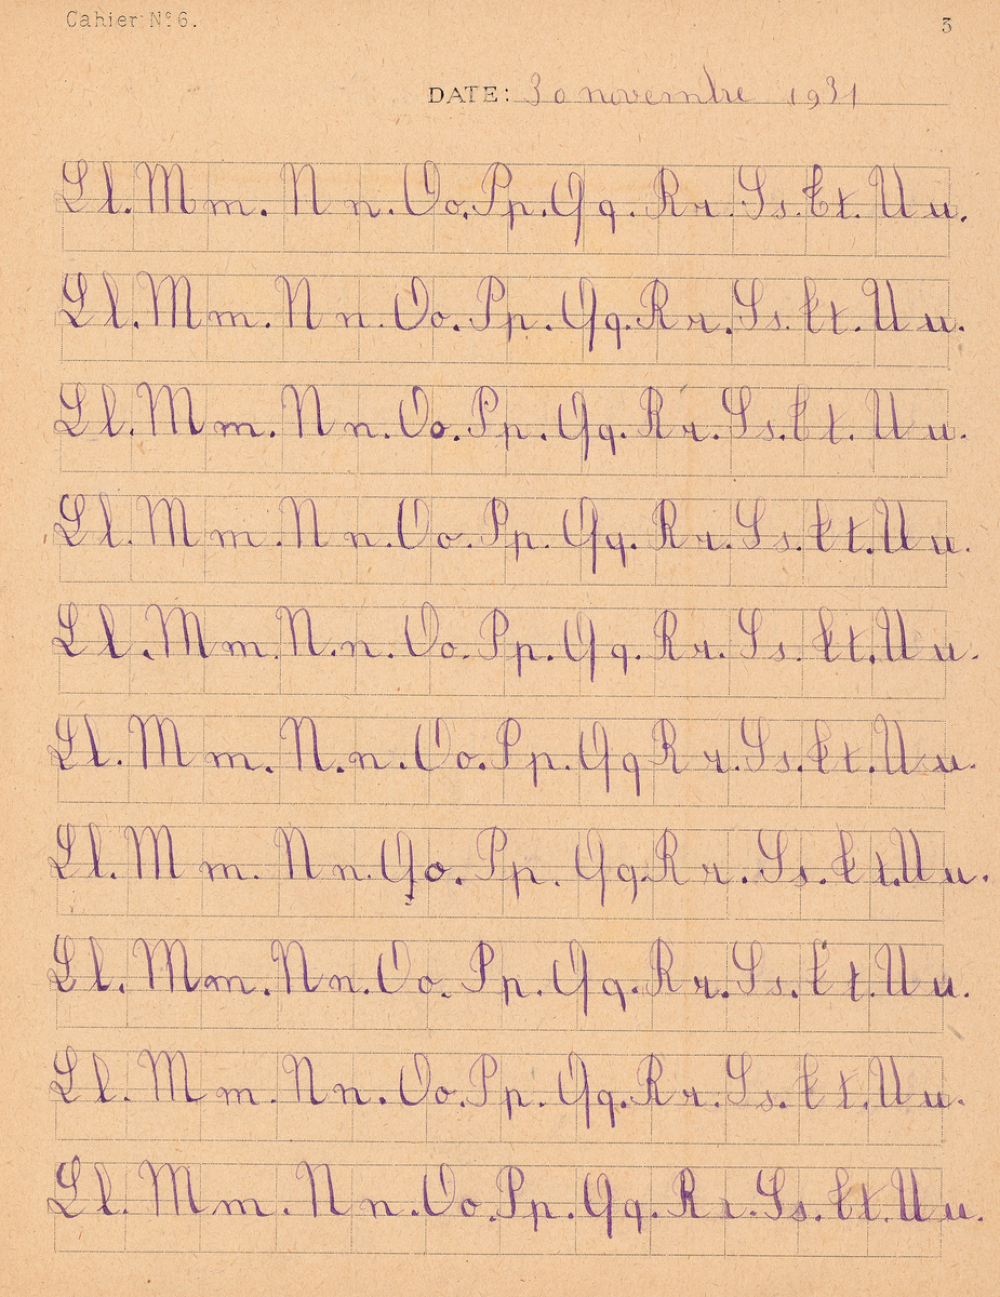 Cahier Nº 6.
3
DATE: 30 novembre 1931
Ll. Mm. Nn. Oo. Pp. Qq. Rr. Ss. Tt. Uu.
Ll. Mm. Nn. Oo. Pp. Qq. Rr. Ss. Tt. Uu.
Ll. Mm. Nn. Oo. Pp. Qq. Rr. Ss. Tt. Uu.
Ll. Mm. Nn. Oo. Pp. Qq. Rr. Ss. Tt. Uu.
Ll. Mm. N.n. Oo. Pp. Qq. Rr. Ss. Tt. Uu.
Ll. Mm. N.n. Oo. Pp. Qq Rr. Ss. Tt. Uu.
Ll. Mm. Nn. Qo. Pp. Qq. Rr. Ss. Tt. Uu.
Ll. Mm. Nn. Oo. Pp. Qq. Rr. Ss. Tt. Uu.
Ll. Mm. Nn. Oo. Pp. Qq. Rr. Ss. Tt. Uu.
Ll. Mm. Nn. Oo. Pp. Qq. Rr. Ss. Tt. Uu.